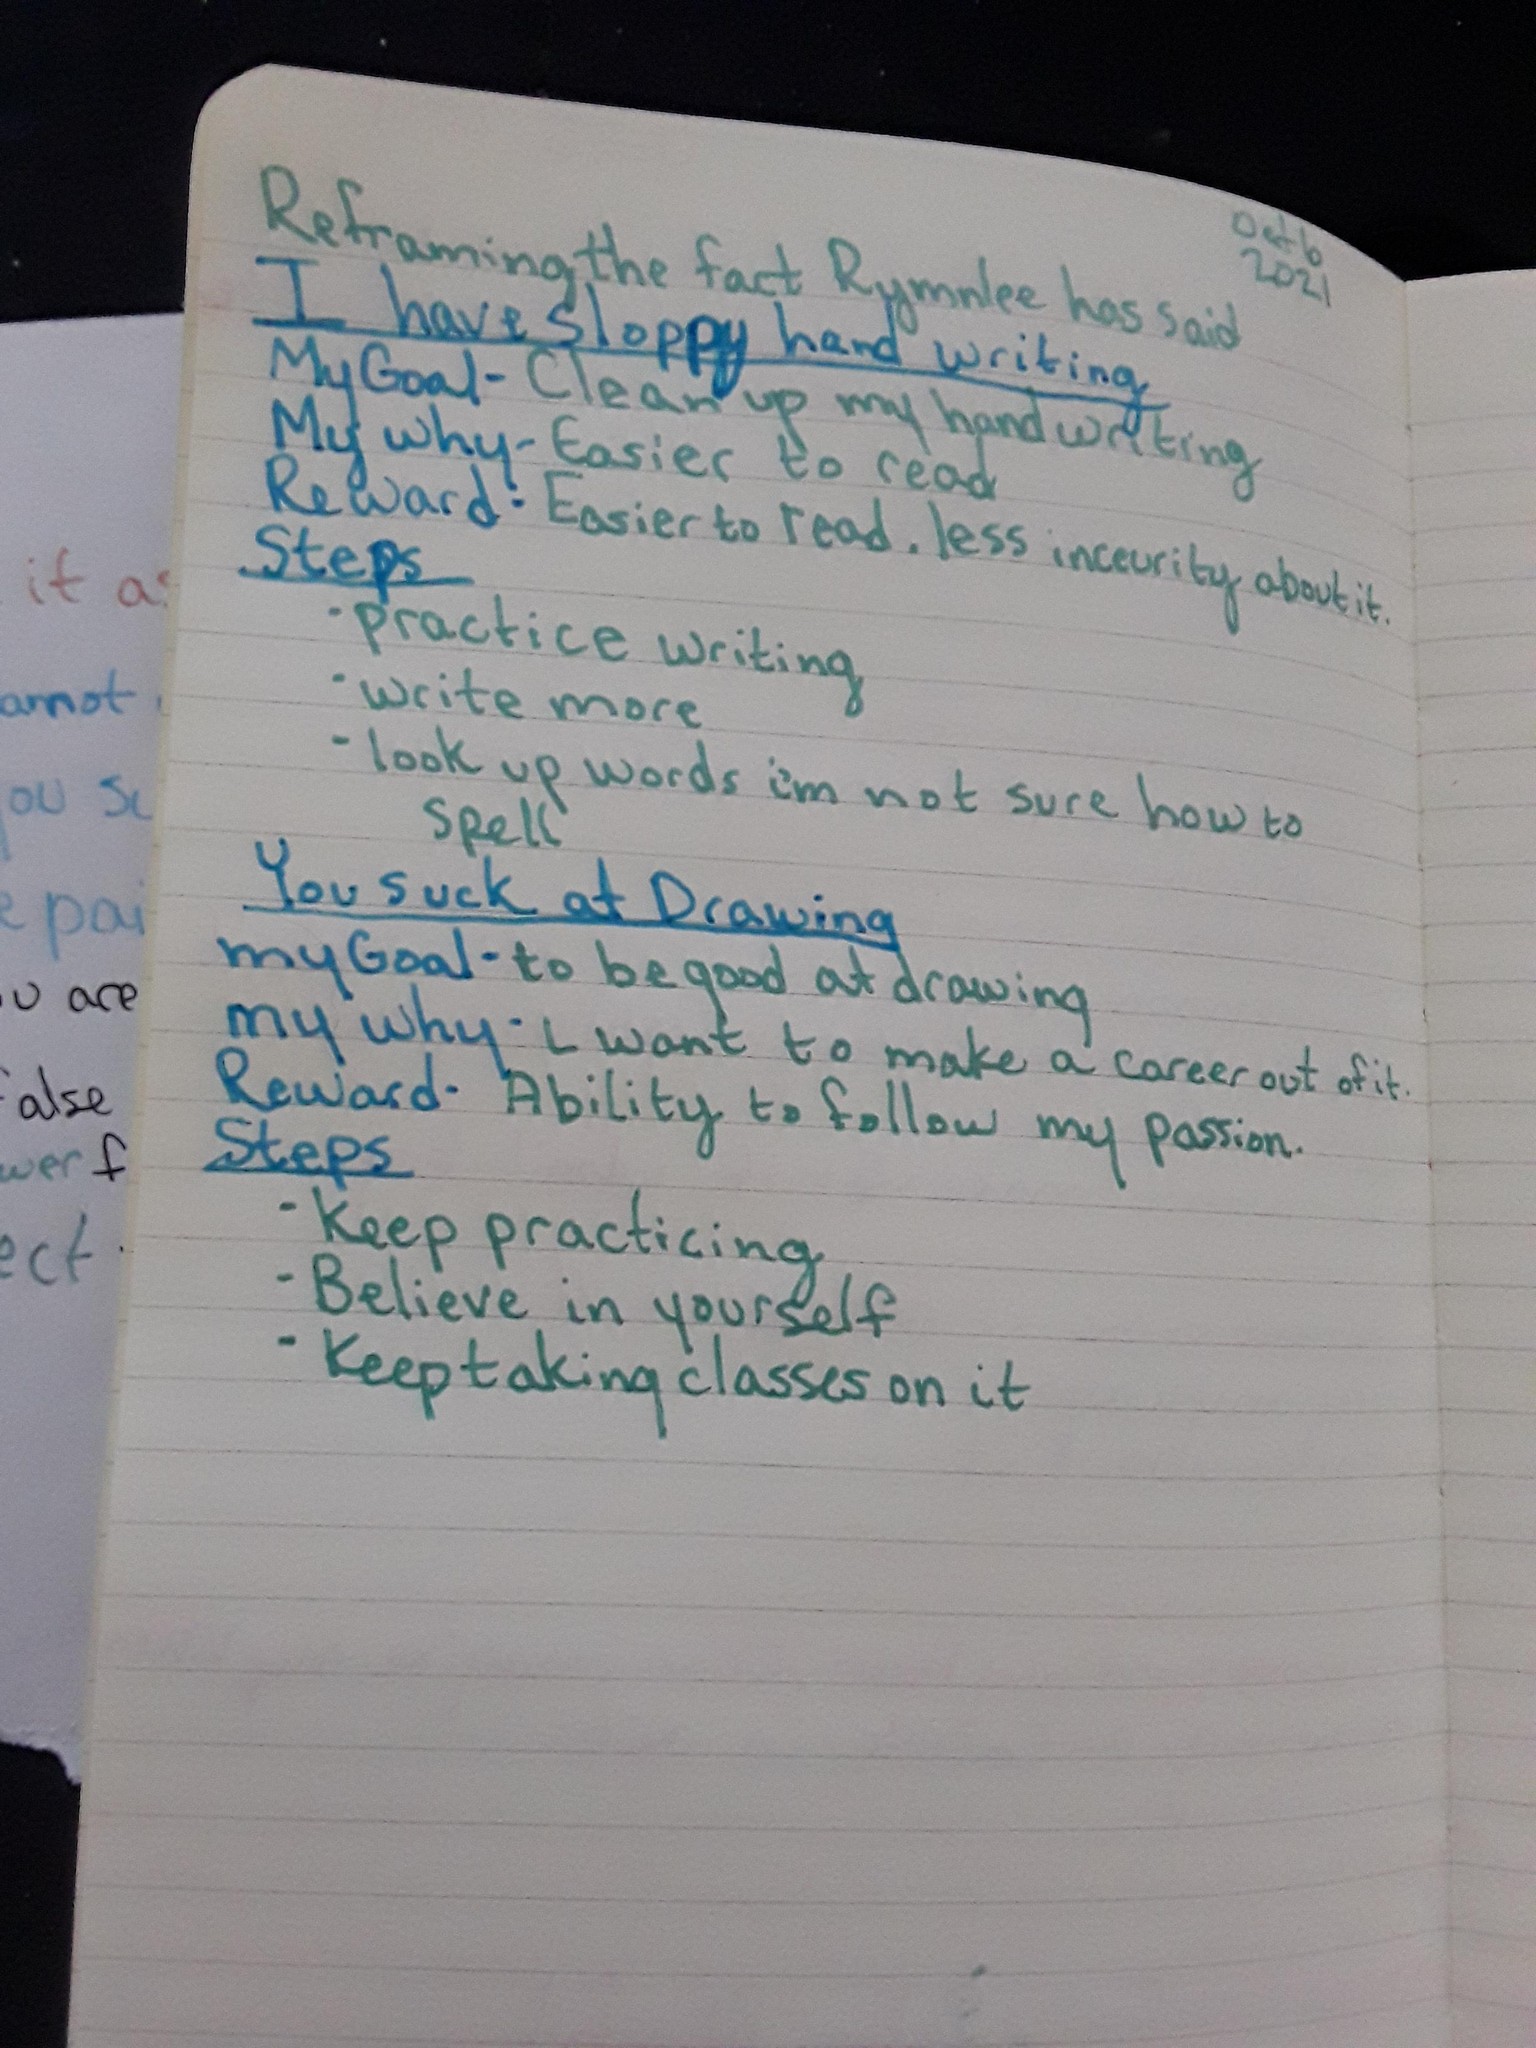 Oct 6
2021
Reframing the fact Rymnlee has said
I have sloppy hand writing
My Goal - Clean up my handwriting
My why - Easier to read
Reward: Easier to read. less inceurity about it.
Steps
- practice writing
- write more
- look up words i'm not sure how to
spell
You suck at Drawing
my Goal - to be good at drawing
my why - I want to make a career out of it.
Reward - Ability to follow my passion.
Steps
- Keep practicing
- Believe in yourself
- Keep taking classes on it
it as
annot
you su
e pai
u are
false
wer f
ect